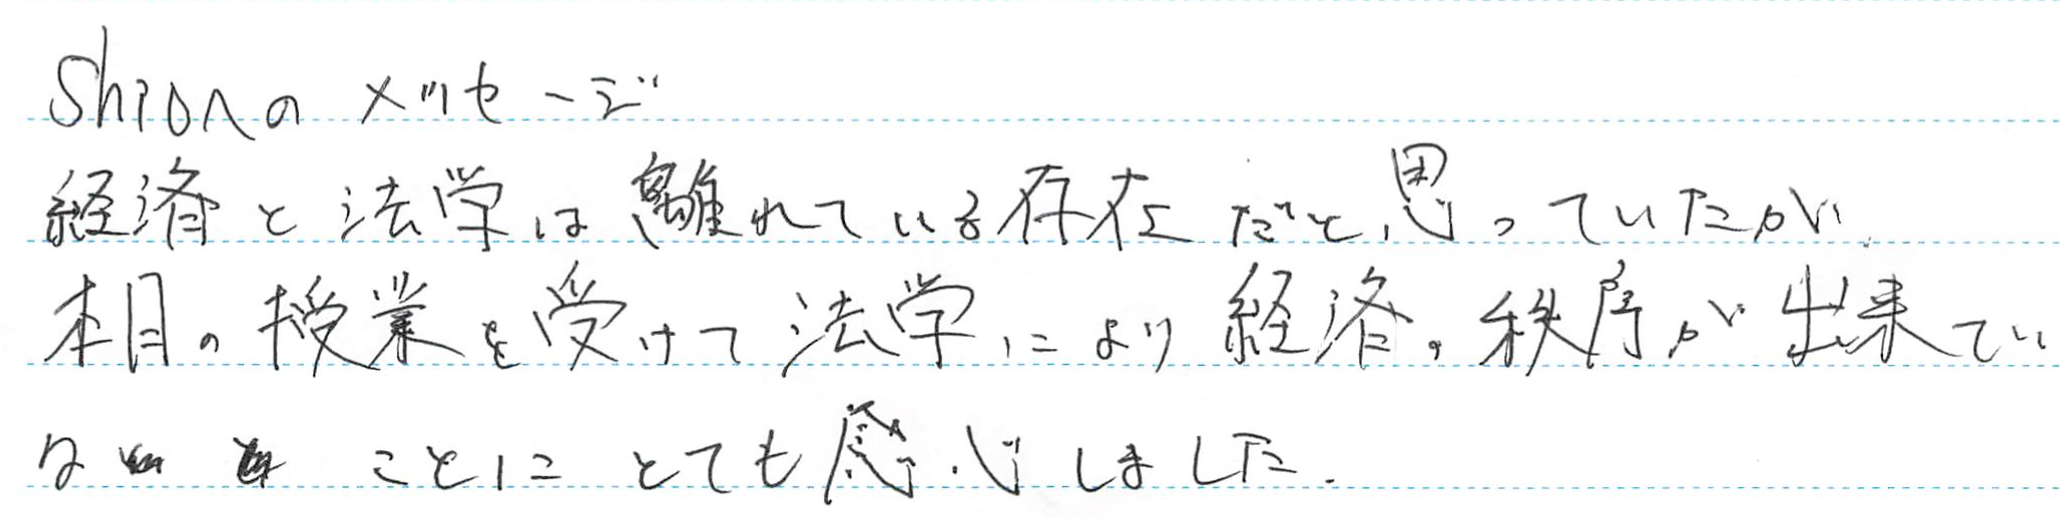 Shionへの メッセージ
経済と法学は離れている存在だと思っていたが、
本日の授業を受けて法学により経済の秩序が出来てい
る ことにとても感心しました.